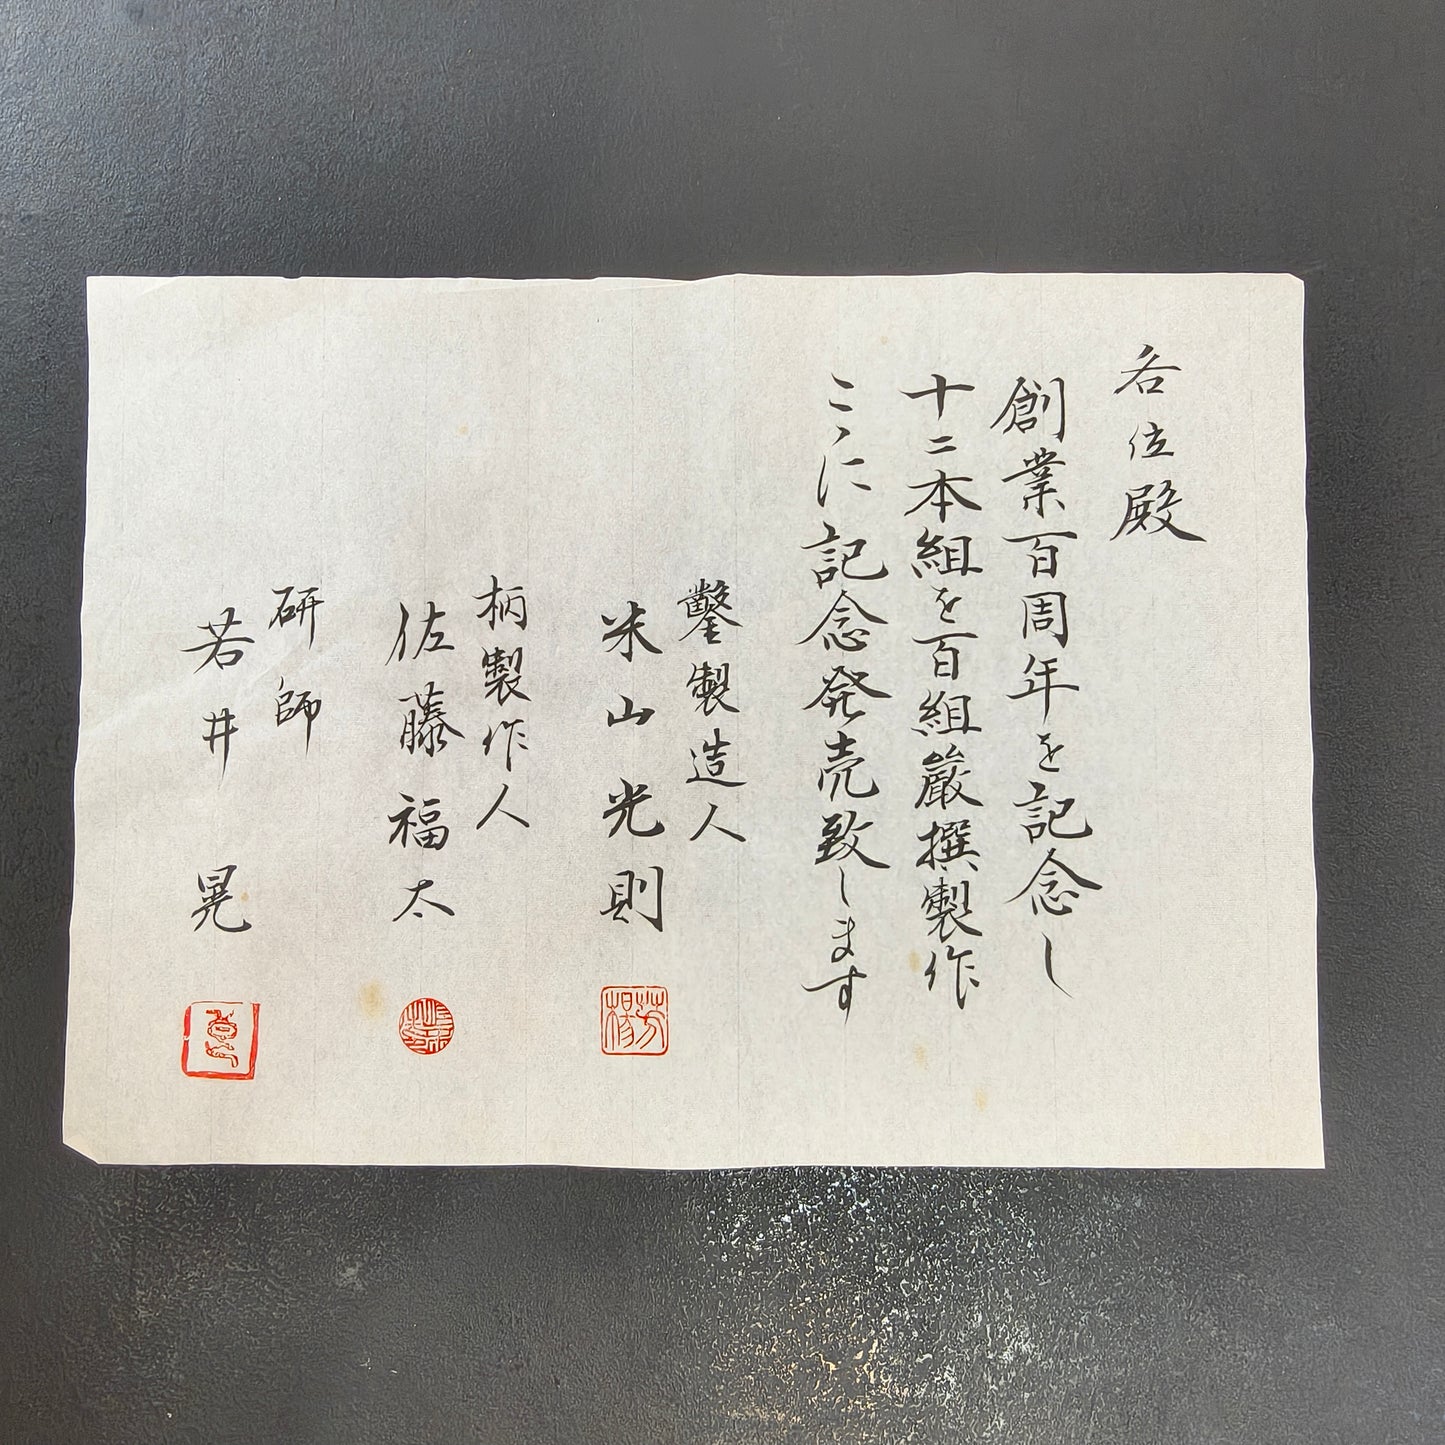 各位殿
創業百周年を記念し
十二本組を百組厳撰製作
こゝに記念発売致します
鑿製造人
米山光則
柄製作人
佐藤福太
研師
若井晃